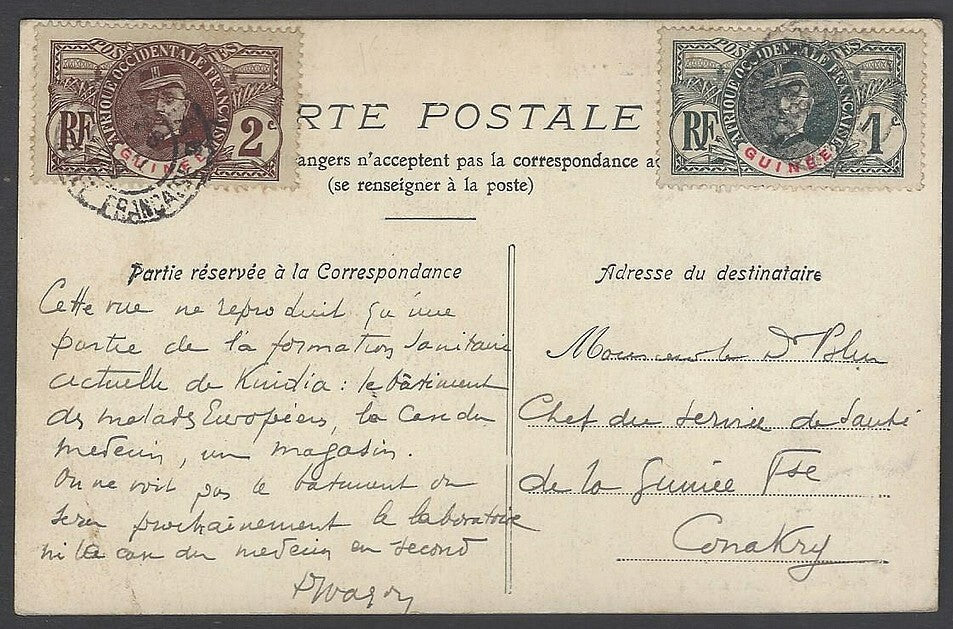 AFRIQUE OCCIDENTALE FRANÇAISE
POSTES
RF
2c
GUINÉE
FRANÇAISE
AFRIQUE OCCIDENTALE FRANÇAISE
POSTES
RF
1c
GUINÉE
RTE POSTALE
angers n'acceptent pas la correspondance a
(se renseigner à la poste)
Partie réservée à la Correspondance
Cette vue ne reproduit qu'une
partie de la formation sanitaire
actuelle de Kindia : le bâtiment
des malades Européens, la Case du
medecin, un magasin.
On ne voit pas le batiment ou
sera prochainement le laboratoire
ni la case du medecin en second
Adresse du destinataire
Monsieur le Dr
Chef du Service de Santé
de la Guinée Fse
Conakry